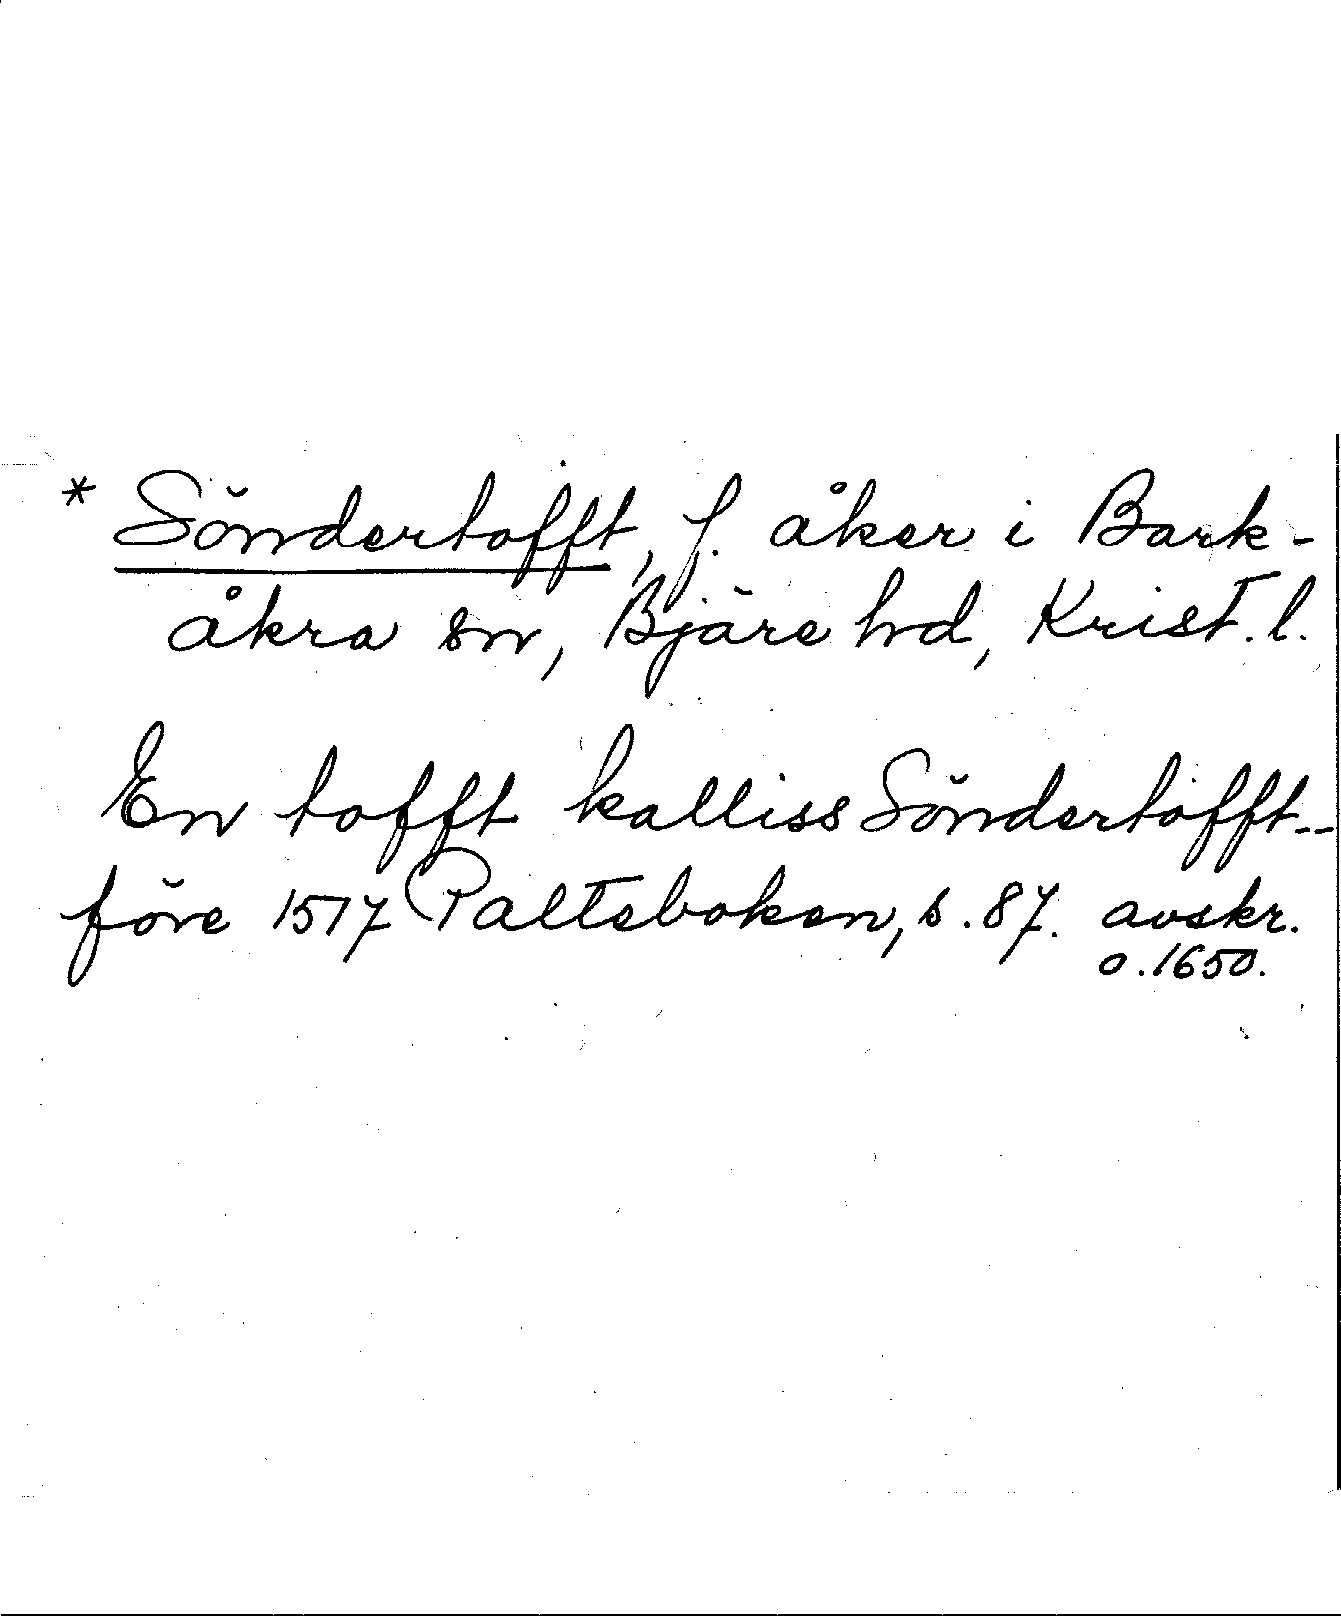 * Söndertofft, f. åker i Bark-
åkra sn, Bjäre hd, Krist. l.
En tofft kalliss Söndertofft--
före 1517 Palteboken, s. 87. avskr.
o. 1650.